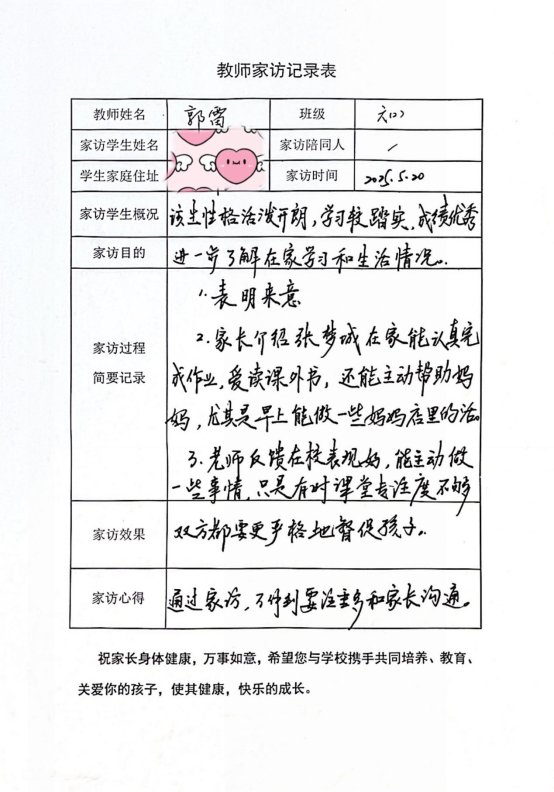 教师家访记录表
教师姓名 郭雷 班级 六(2)
家访学生姓名 家访陪同人 /
学生家庭住址 家访时间 2025.5.20
家访学生概况 该生性格活泼开朗,学习较踏实,成绩优秀
家访目的 进一步了解在家学习和生活情况。
1.表明来意
2.家长介绍张梦城在家能认真完
家访过程
简要记录
成作业,爱读课外书,还能主动帮助妈
妈,尤其是早上能做一些妈妈店里的活。
3.老师反馈在校表现好,能主动做
一些事情,只是有时课堂专注度不够
家访效果 双方都要更严格地督促孩子。
家访心得 通过家访,了解到要注重多和家长沟通。
祝家长身体健康,万事如意,希望您与学校携手共同培养、教育、
关爱你的孩子,使其健康,快乐的成长。